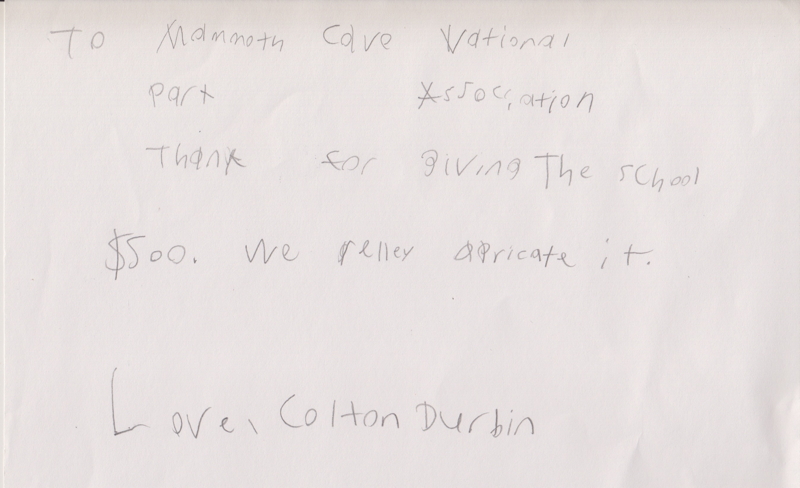 To Mammoth Cave National
Park Association
Thank for giving The school
$500. We relley appricate it.
Love, Colton Durbin